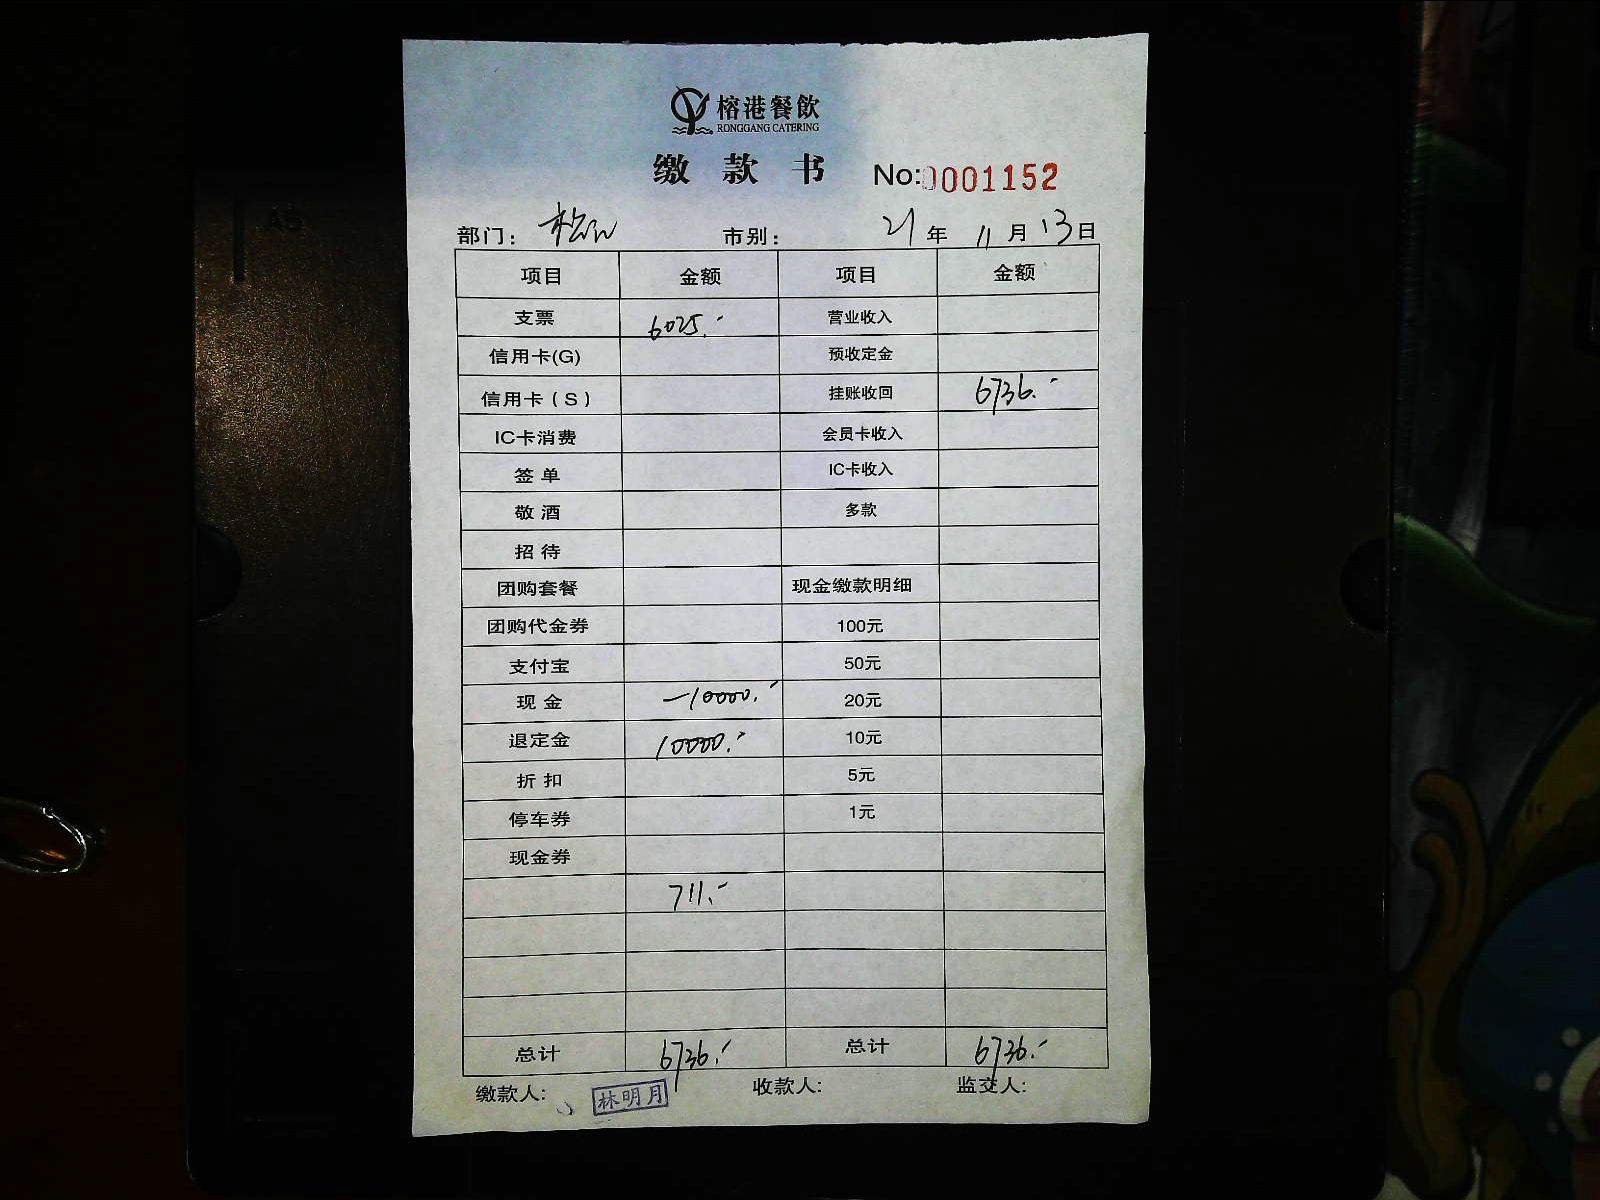 榕港餐飲
RONGGANG CATERING
缴 款 书 No:0001152
部门： 市别： 21年 11月13日
项目 金额 项目 金额
支票 6025.- 营业收入
信用卡(G) 预收定金
信用卡（S） 挂账收回 6736.-
IC卡消费 会员卡收入
签 单 IC卡收入
敬 酒 多款
招 待
团购套餐 现金缴款明细
团购代金券 100元
支付宝 50元
现 金 -10000.- 20元
退定金 10000.- 10元
折 扣 5元
停车券 1元
现金券
711.-
总计 6736.- 总计 6736.-
缴款人: 林明月 收款人: 监交人: